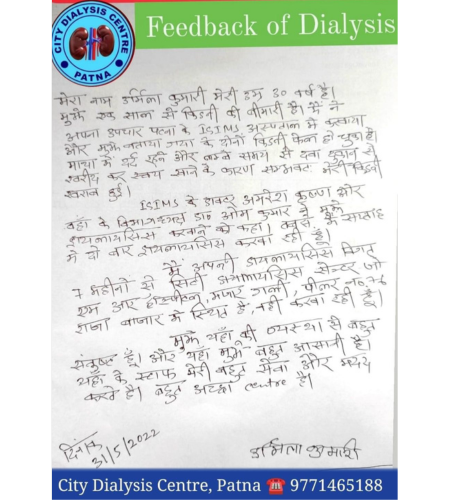 CITY DIALYSIS CENTRE
PATNA
Feedback of Dialysis
मेरा नाम उर्मिला कुमारी मेरी उम्र 30 वर्ष है।
मुझे एक साल से किडनी की बीमारी है। मैं ने
अपना उपचार पटना के IGIMS अस्पताल में करवाया
और मुझे बताया गया के दोनों किडनी फेल हो चुका है।
माथा में दर्द रहने और लम्बे समय से दवा दुकान से
खरीद कर स्वयं खाने के कारण सम्भवतः मेरी किडनी
खराब हुई।
IGIMS के डाक्टर अमरेश कृष्ण और
वहाँ के विभागाध्यक्ष डा० ओम कुमार ने मुझे
डायलायसिस करवाने को कहा। के साप्ताह
में दो बार डायलायसिस करवा रही हूँ।
मैं अपनी डायलायसिस विगत
7 महीनों से सिटी डायलायसिस सेन्टर जो
एम आर हॉस्पीटल, मजार गली, पीलर no. 76
राजा बाजार में स्थित है, वहीं करवा रही हूँ।
मुझे यहाँ की व्यस्था से बहुत
संतुष्ट हूँ। और यहाँ मुझे बहुत आसानी है।
यहाँ के स्टाफ मेरी बहुत सेवा और मदद
करते है। बहुत अच्छा centre है।
दिनांक
31/5/2022
उर्मिला कुमारी
City Dialysis Centre, Patna ☎ 9771465188